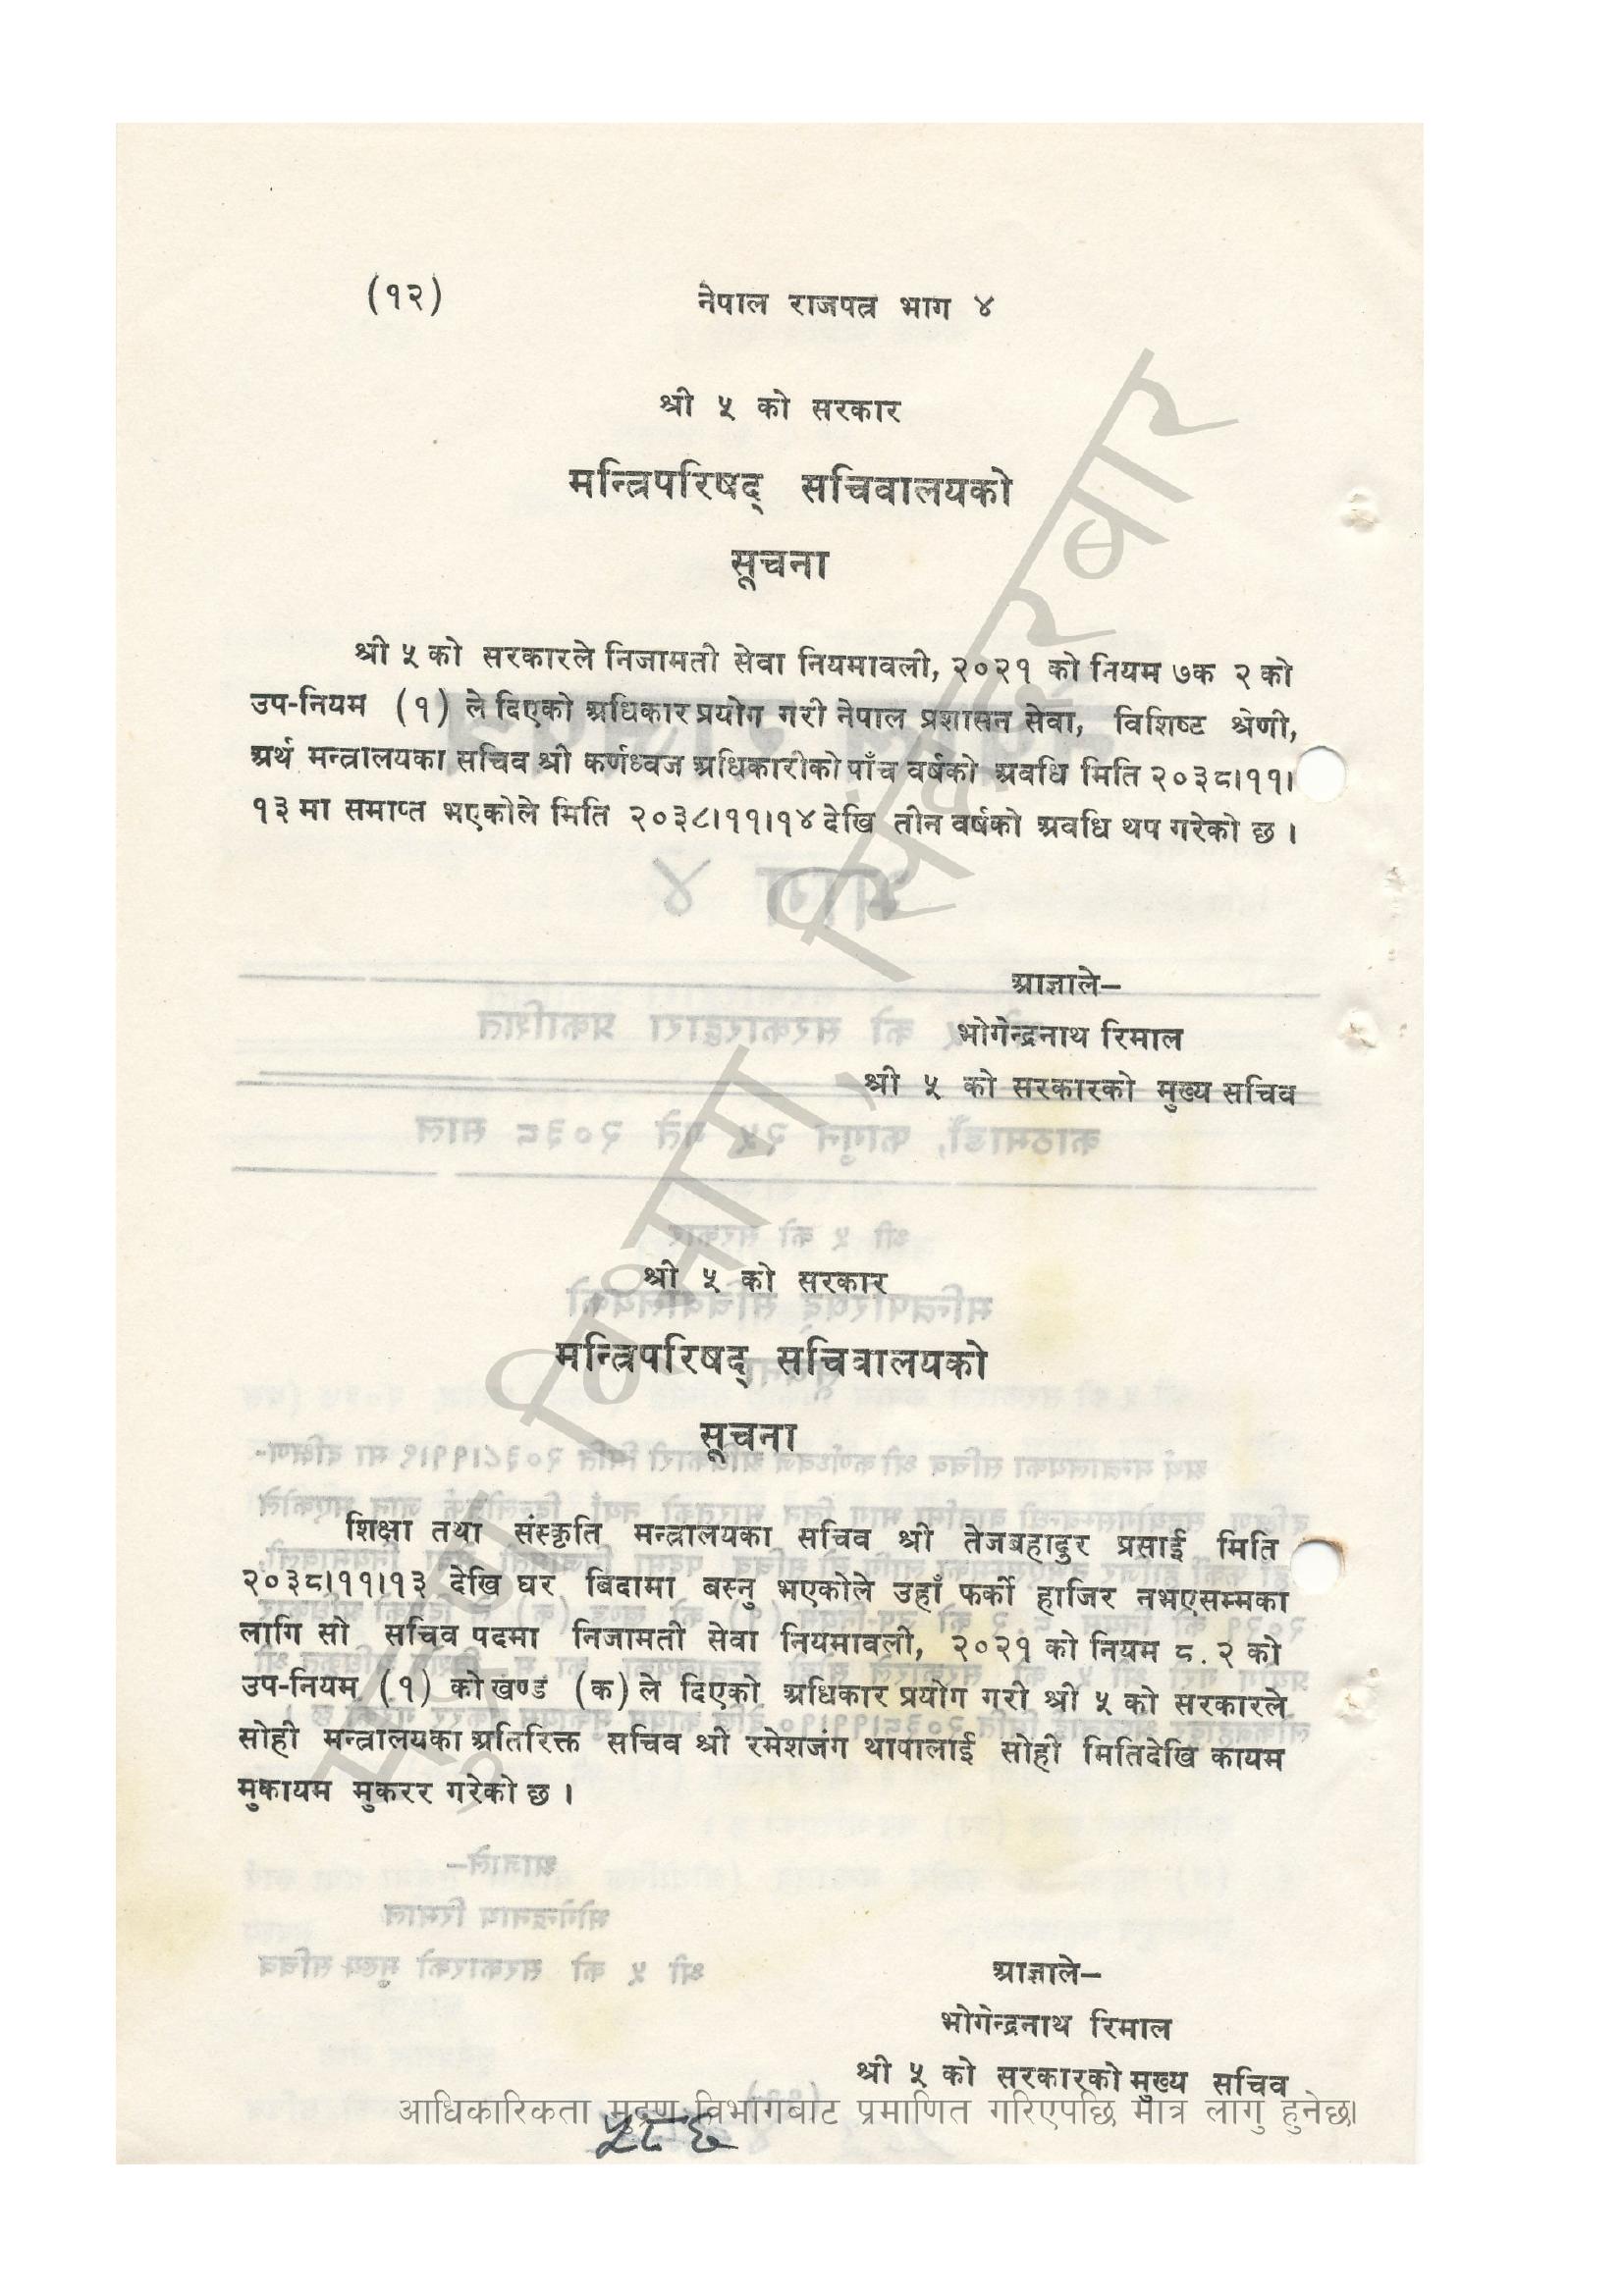 (१२) नेपाल राजपत्र भाग ४
श्री ५ को सरकार
मन्त्रिपरिषद् सचिवालयको
सूचना
श्री ५ को सरकारले निजामती सेवा नियमावली, २०२१ को नियम ७क २ को
उप-नियम (१) ले दिएको अधिकार प्रयोग गरी नेपाल प्रशासन सेवा, विशिष्ट श्रेणी,
अर्थ मन्त्रालयका सचिव श्री कर्णध्वज अधिकारीको पाँच वर्षको अवधि मिति २०३८।११।
१३ मा समाप्त भएकोले मिति २०३८।११।१४ देखि तीन वर्षको अवधि थप गरेको छ ।
आज्ञाले–
भोगेन्द्रनाथ रिमाल
श्री ५ को सरकारको मुख्य सचिव
श्री ५ को सरकार
मन्त्रिपरिषद् सचित्रालयको
सूचना
शिक्षा तथा संस्कृति मन्त्रालयका सचिव श्री तेजबहादुर प्रसाई मिति
२०३८।११।१३ देखि घर बिदामा बस्नु भएकोले उहाँ फर्की हाजिर नभएसम्मका
लागि सो सचिव पदमा निजामती सेवा नियमावली, २०२१ को नियम ८.२ को
उप-नियम (१) को खण्ड (क) ले दिएको अधिकार प्रयोग गरी श्री ५ को सरकारले
सोही मन्त्रालयका अतिरिक्त सचिव श्री रमेशजंग थापालाई सोही मितिदेखि कायम
मुकायम मुकरर गरेको छ ।
आज्ञाले–
भोगेन्द्रनाथ रिमाल
श्री ५ को सरकारको मुख्य सचिव
आधिकारिकता मुद्रण विभागबाट प्रमाणित गरिएपछि मात्र लागु हुनेछ।
मुद्रण विभाग, सिंहदरबार